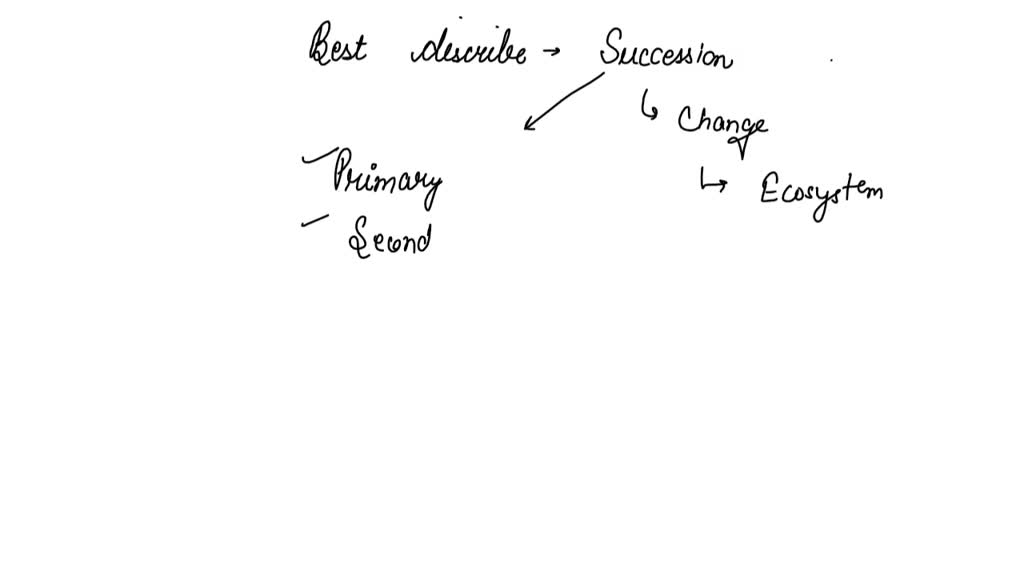 Best describe → Succession
↳ Change
↳ Ecosystem
Primary
Second